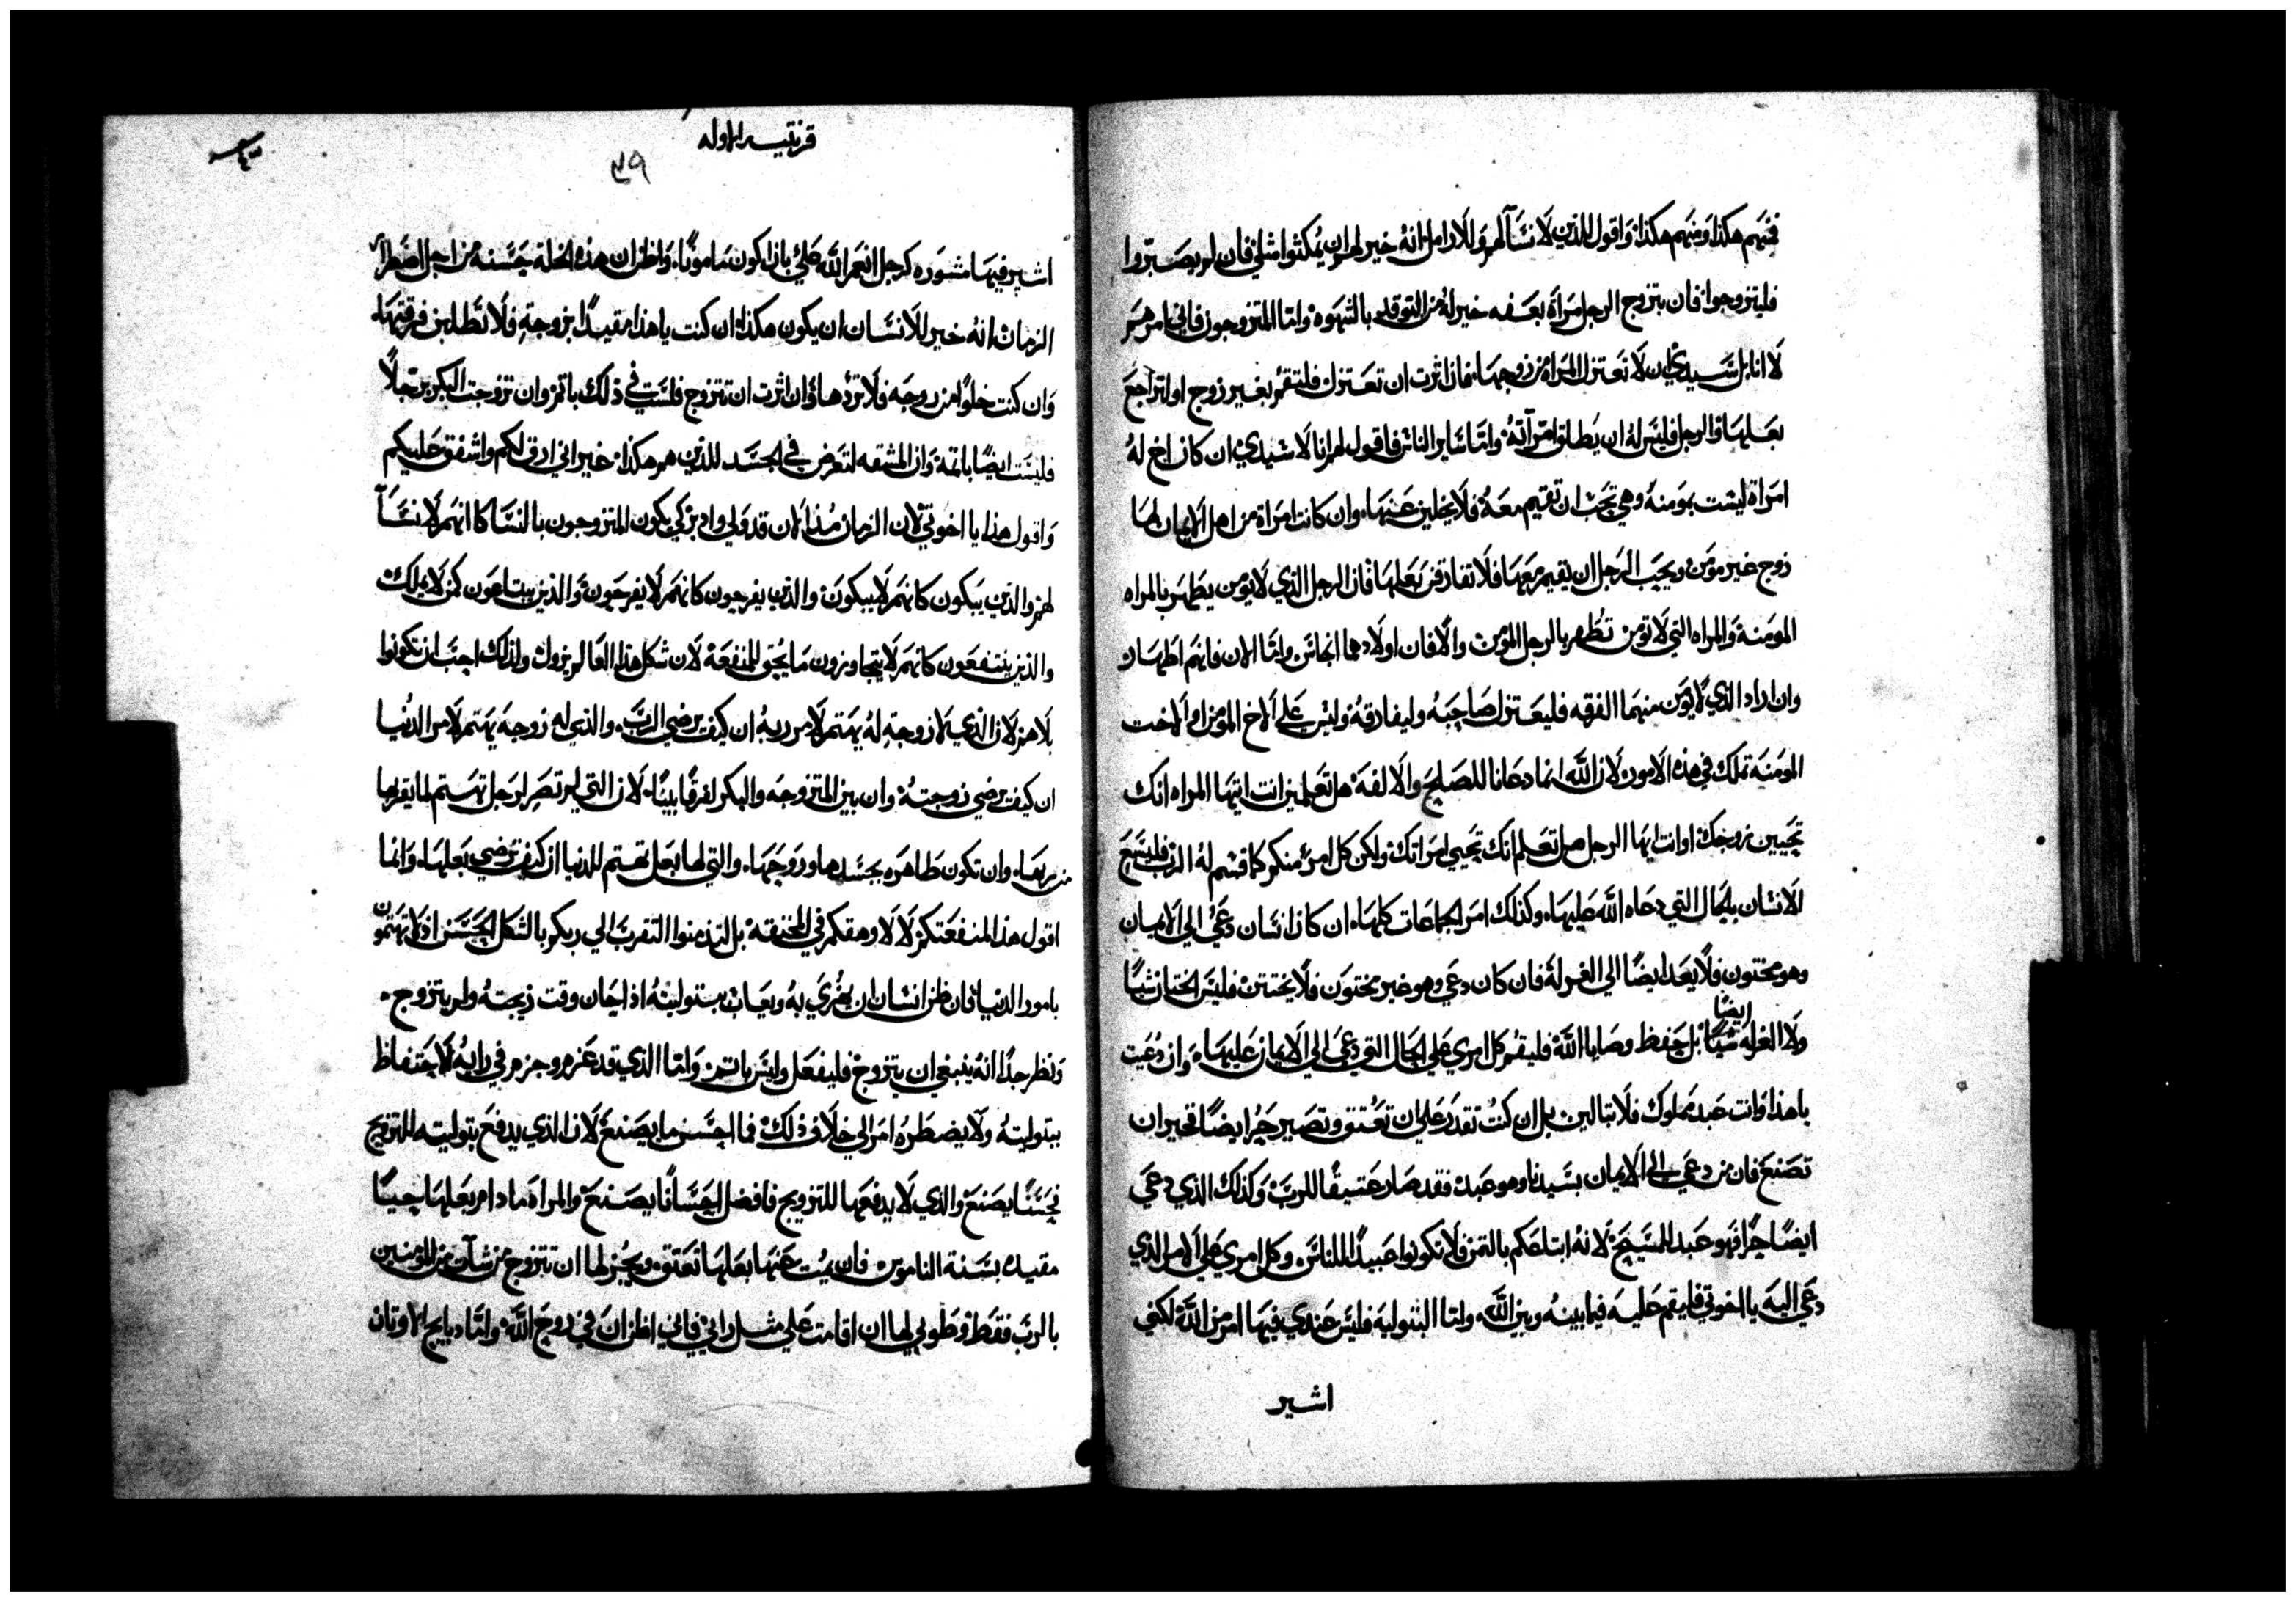 فمنهم هكذا ومنهم هكذا واقول للذين لا نسآ لهم وللارامل انه خير لهم ان يمكثوا مثلي فان لم يصبروا
فليتزوجوا فان يتزوج الرجل مراة بعفه خير له من التوقد بالشهوه واما المتزوجون فاني امرهم
لا انا بل سيدي ان لا تعتزل المراة من زوجها فان اثرت ان تعتزل فلتقم بغير زوج او لتراجع
بعلها والرجل فليس له ان يطلق امرآته واما ساير الناس فاقول لهم انا لا سيدي ان كان اخ له
امراة ليست بومنه وهي تحب ان تقيم معه فلا يخلين عنها وان كانت امراة من اهل الايمان لها
زوج غير مومن ويحب الرجل ان يقيم معها فلا تفارقن بعلها فان الرجل الذي لا يومن يطهر بالمراه
المومنة والمراه التي لا تومن تطهر بالرجل المؤمن والا فان اولادهما انجاس واما الان فانهم اطهار
وان اراد الذي لا يومن منهما الفرقه فليعتزل صاحبه وليفارقه وليس على الاخ المومن او الاخت
المومنة تملك في هذه الامور لان الله انما دعانا للصلح والالفة هل تعلمين انت ايتها المراه انك
تحيين زوجك او انت ايها الرجل هل تعلم انك تحيي امراتك ولكن كل امرئ منكم كما قسم له الرب فليسع
الانسان بالحال التي دعاه الله عليها وكذلك امر الجماعات كلها ان كان انسان دعي الي الايمان
وهو مختون فلا يعد ايضا الي الغرلة فان كان دعي وهو غير مختون فلا يختتن فليس الختان شيا
ولا الغرله شيا ايضا بل حفظ وصايا الله فليقم كل امرى على الحال التي دعي الي الايمان عليها وان دعيت
ياهذا وانت عبد مملوك فلا تبالين بل ان كنت تقدر علي ان تعتق وتصير حرا ايضا فخير ان
تصنع فان من دعي الى الايمان بسيدنا وهو عبد فقد صار عتيقا للرب وكذلك الذي دعي
ايضا حرا فهو عبد المسيح لانه ابتاعكم بالثمن فلا تكونوا عبيدا للناس وكل امرى على الامر الذي
دعي اليه يا اخوتي فليقم عليه فيما بينه وبين الله واما البتولية فليس عندي فيها امر من الله لكني
اشير
قرنتيه الاوله
٣٩
اشير فيها مشوره كرجل انعم الله علي بان اكون مامونا واظن ان هذه الخلة حسنه من اجل اضطرار
الزمان انه خير للانسان ان يكون هكذا ان كنت ياهذا مقيدا بزوجة فلا تطلبن فرقتها
وان كنت خلوا من زوجه فلا تردها وان اثرت ان تتزوج فلست في ذلك باثم وان تزوجت البكر برجلا
فليست ايضا باثمة وان المشقه لتعرض في الجسد للذين هم هكذا غير اني ارق لكم واشفق عليكم
واقول هذا يا اخوتي لان الزمان مذ الان قد ولي وادبر كي يكون المتزوجون بالنسا كانهم لا نسآ
لهم والذين يبكون كانهم لا يبكون والذين يفرحون كانهم لا يفرحون والذين يبتاعون كمن لا يملك
والذين ينتفعون كانهم لا يتجاوزون ما يحق للمنفعة لان شكل هذا العالم يزول ولذلك احب ان تكونوا
بلا هم لان الذي لا زوجة له يهتم لامر ربه ان كيف يرضي الرب والذي له زوجة يهتم لامر الدنيا
ان كيف يرضي زوجته وان بين المتزوجه والبكر لفرقا بينا لان التي لم تصر لرجل تهتم لما يقربها
من ربها وان تكون طاهره بجسدها وروحها والتي لها بعل تهتم للدنيا ان كيف ترضي بعلها وانما
اقول هذا لمنفعتكم لا لاوهقكم في المخنقة بل لتدمنوا التقرب الي ربكم بالشكل الحسن اذ لا تهتمون
بامور الدنيا فان ظن انسان ان يهزي به ويعاب ببتوليته اذا حان وقت زيجته ولم يتزوج
ونظر جدا انه ينبغي ان يتزوج فليفعل وليس ياثم واما الذي قد عزم وجزم في رايه لاحتفاظ
ببتوليته ولا يضطره امر الي خلاف ذلك فما احسن ما يصنع لان الذي يدفع بتوليته للتزويج
فحسنا يصنع والذي لا يدفعها للتزويج فافضل احسانا يصنع والمراة مادام بعلها حيا
مقيده بسنة الناموس فان يمت عنها بعلها تعتق ويجز لها ان تتزوج من شآت من المومنين
بالرب فقط وطوبي لها ان اقامت علي مثل رايي فاني اظن ان في روح الله واما دبايح الاوتان